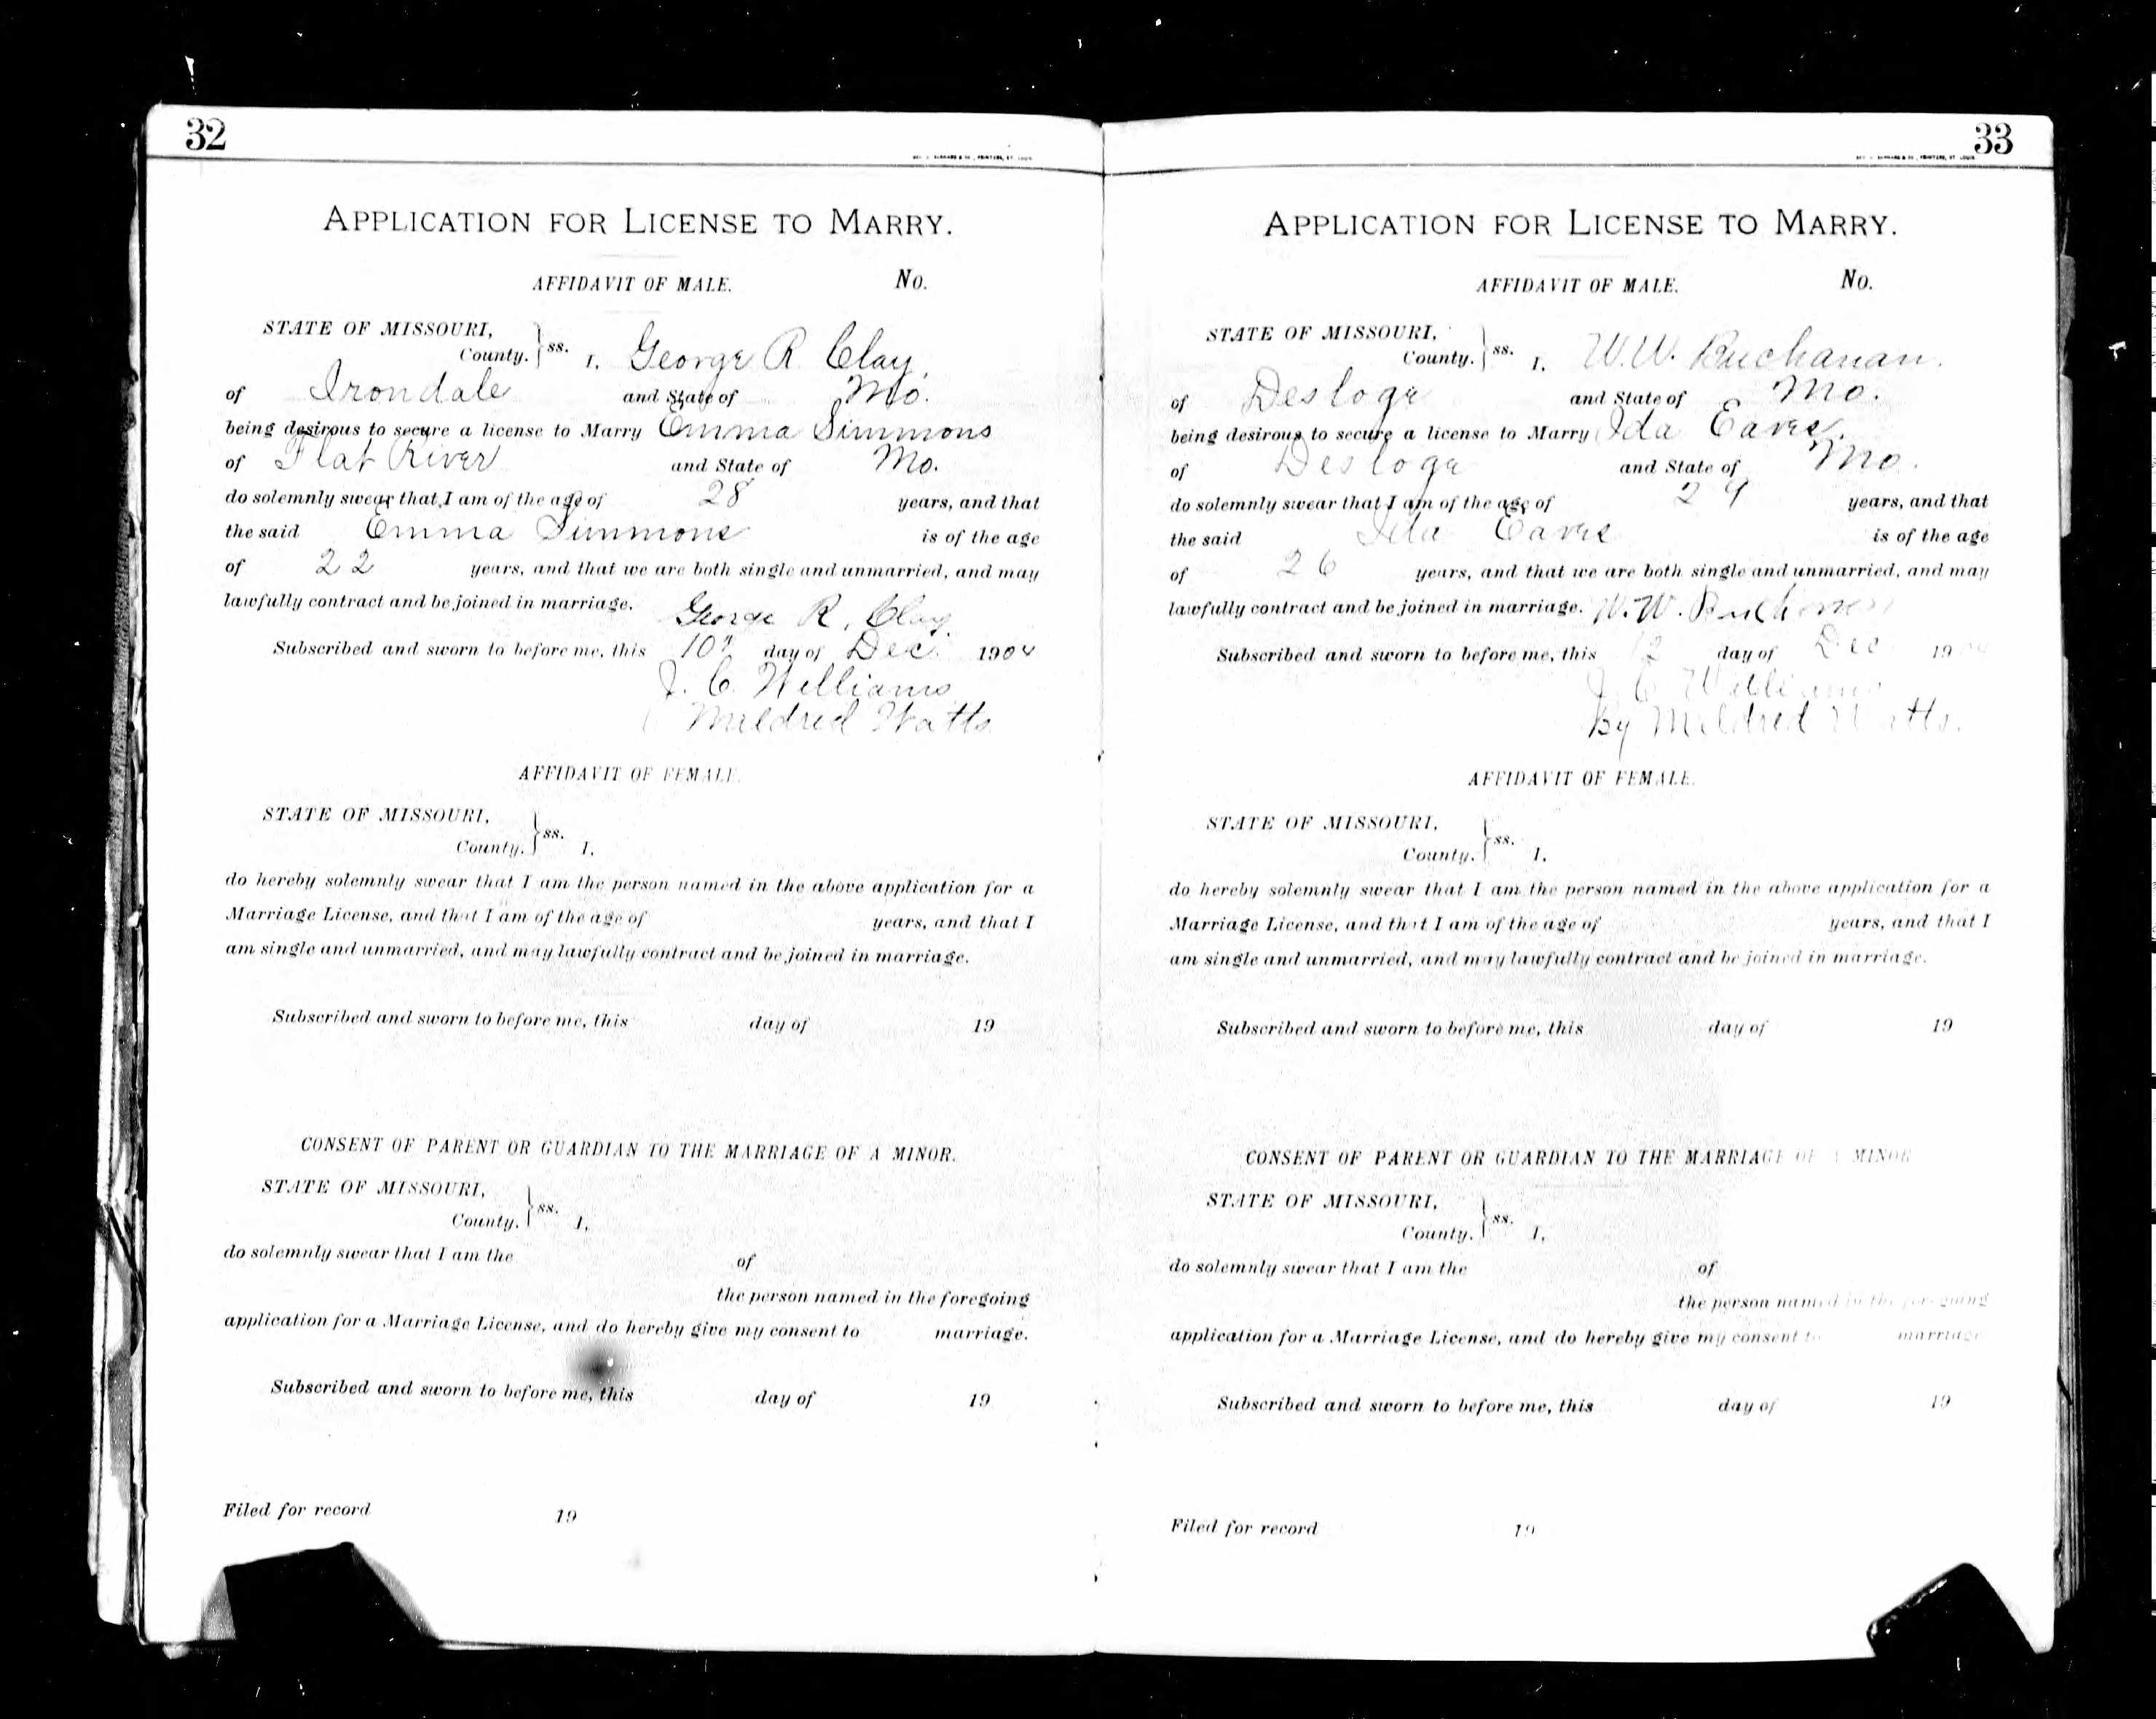 32
APPLICATION FOR LICENSE TO MARRY.
AFFIDAVIT OF MALE. No.
STATE OF MISSOURI,
County. } ss. I, George R. Clay,
of Irondale and State of Mo.
being desirous to secure a license to Marry Emma Simmons
of Flat River and State of Mo.
do solemnly swear that I am of the age of 28 years, and that
the said Emma Simmons is of the age
of 22 years, and that we are both single and unmarried, and may
lawfully contract and be joined in marriage.
George R. Clay
Subscribed and sworn to before me, this 10" day of Dec. 1904
J. C. Williams
Mildred Watts
AFFIDAVIT OF FEMALE.
STATE OF MISSOURI,
County. } ss. I,
do hereby solemnly swear that I am the person named in the above application for a
Marriage License, and that I am of the age of years, and that I
am single and unmarried, and may lawfully contract and be joined in marriage.
Subscribed and sworn to before me, this day of 19
CONSENT OF PARENT OR GUARDIAN TO THE MARRIAGE OF A MINOR.
STATE OF MISSOURI,
County. } ss. I,
do solemnly swear that I am the of
the person named in the foregoing
application for a Marriage License, and do hereby give my consent to marriage.
Subscribed and sworn to before me, this day of 19
Filed for record 19
33
APPLICATION FOR LICENSE TO MARRY.
AFFIDAVIT OF MALE. No.
STATE OF MISSOURI,
County. } ss. I, W. W. Buchanan.
of Desloge and State of Mo.
being desirous to secure a license to Marry Ida Eaves.
of Desloge and State of Mo.
do solemnly swear that I am of the age of 29 years, and that
the said Ida Eaves is of the age
of 26 years, and that we are both single and unmarried, and may
lawfully contract and be joined in marriage. W. W. Buchanan
Subscribed and sworn to before me, this 12 day of Dec 1904
J C Williams
By Mildred Watts.
AFFIDAVIT OF FEMALE.
STATE OF MISSOURI,
County. } ss. I,
do hereby solemnly swear that I am the person named in the above application for a
Marriage License, and that I am of the age of years, and that I
am single and unmarried, and may lawfully contract and be joined in marriage.
Subscribed and sworn to before me, this day of 19
CONSENT OF PARENT OR GUARDIAN TO THE MARRIAGE OF A MINOR
STATE OF MISSOURI,
County. } ss. I,
do solemnly swear that I am the of
the person named in the foregoing
application for a Marriage License, and do hereby give my consent to marriage
Subscribed and sworn to before me, this day of 19
Filed for record 19